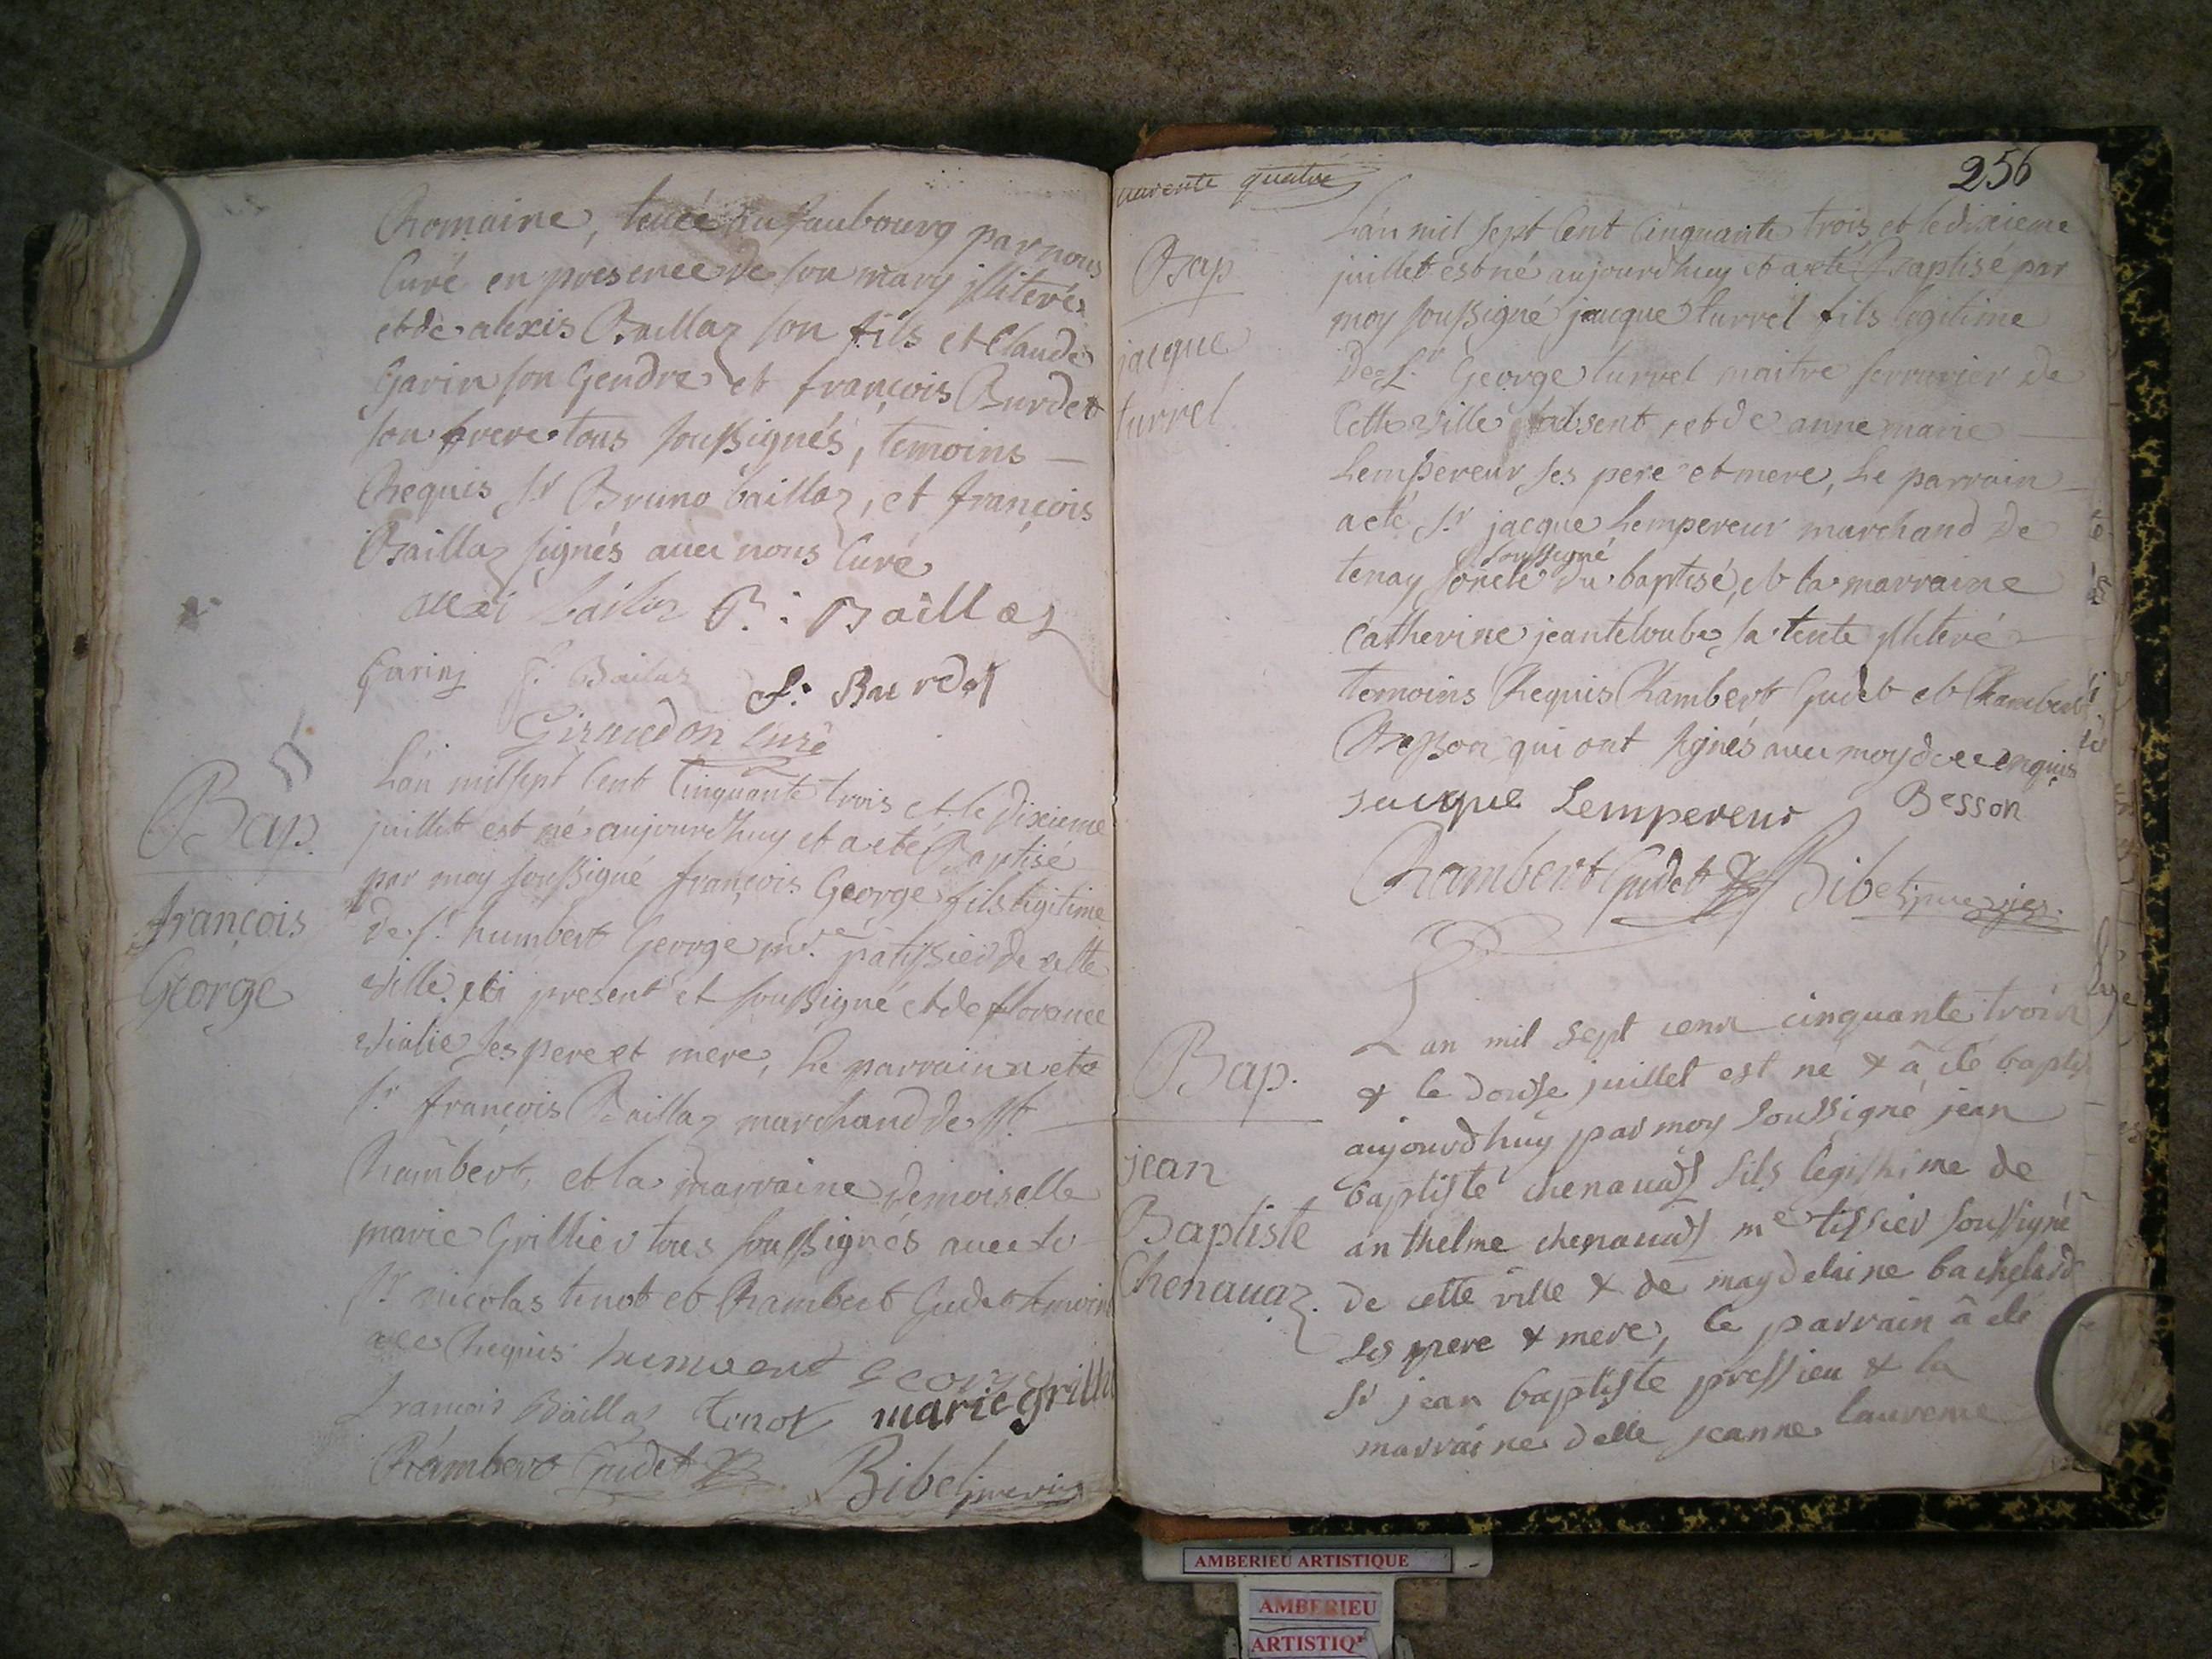 Romaine, faubourg par nous
Curé en presence de son mary illiteré
et de alexis Baillaz son fils et Claude
Garin son Gendre et françois Burdet
son frere tous soussignés, temoins
Requis sr Bruno baillaz, et françois
Baillaz signés avec nous Curé
alexi B: Baillaz
Garin f: Bailaz f: Burdet
Giraudon Curé
Bap.
françois
George
L'an mil sept Cent Cinquante trois et le dixieme
juillet est né aujourdhuy et a eté Baptisé
par moy soussigné françois George fils legitime
de sr humbert George me patissier de cette
ville ici present et soussigné et de florence
vialie ses pere et mere, Le parrain a eté
sr françois Baillaz marchand de st
Rambert, et la marraine demoiselle
marie Grillier tous soussignés avec le
sr nicolas tenot et Rambert Gudet temoins
a ce Requis humbert George
francois Baillaz tenot marie grilli
Rambert Gudet Bibet
quarente quatre
256
Bap
jacque
turrel
L'an mil sept Cent Cinquante trois et le dixieme
juillet est né aujourdhuy et a eté Baptisé par
moy soussigné jacque turrel fils legitime
De sr George turrel maitre serrurier de
Cette ville absent, et de anne marie
Lempereur ses pere et mere, Le parrain
a eté sr jacque Lempereur marchand de
soussigné
tenay oncle du baptisé, et la marraine
Catherine jeanteloube sa tente illiteré
temoins Requis Rambert Gudet et Rambert
Besson qui ont signés avec moy de ce enquis
jacque Lempereur Besson
Rambert Gudet Bibet
Bap.
jean
Baptiste
Chenauaz.
Lan mil sept cent cinquante trois
& le douse juillet est né & â été baptisé
aujourdhuy par moy soussigné jean
baptiste chenauaz fils legithime de
anthelme chenauaz me tissier soussigné
de cette ville & de magdelaine bachelard
ses pere & mere, le parrain â été
sr jean baptiste pressieu & la
marraine delle jeanne laurence
AMBERIEU ARTISTIQUE
AMBERIEU
ARTISTIQ